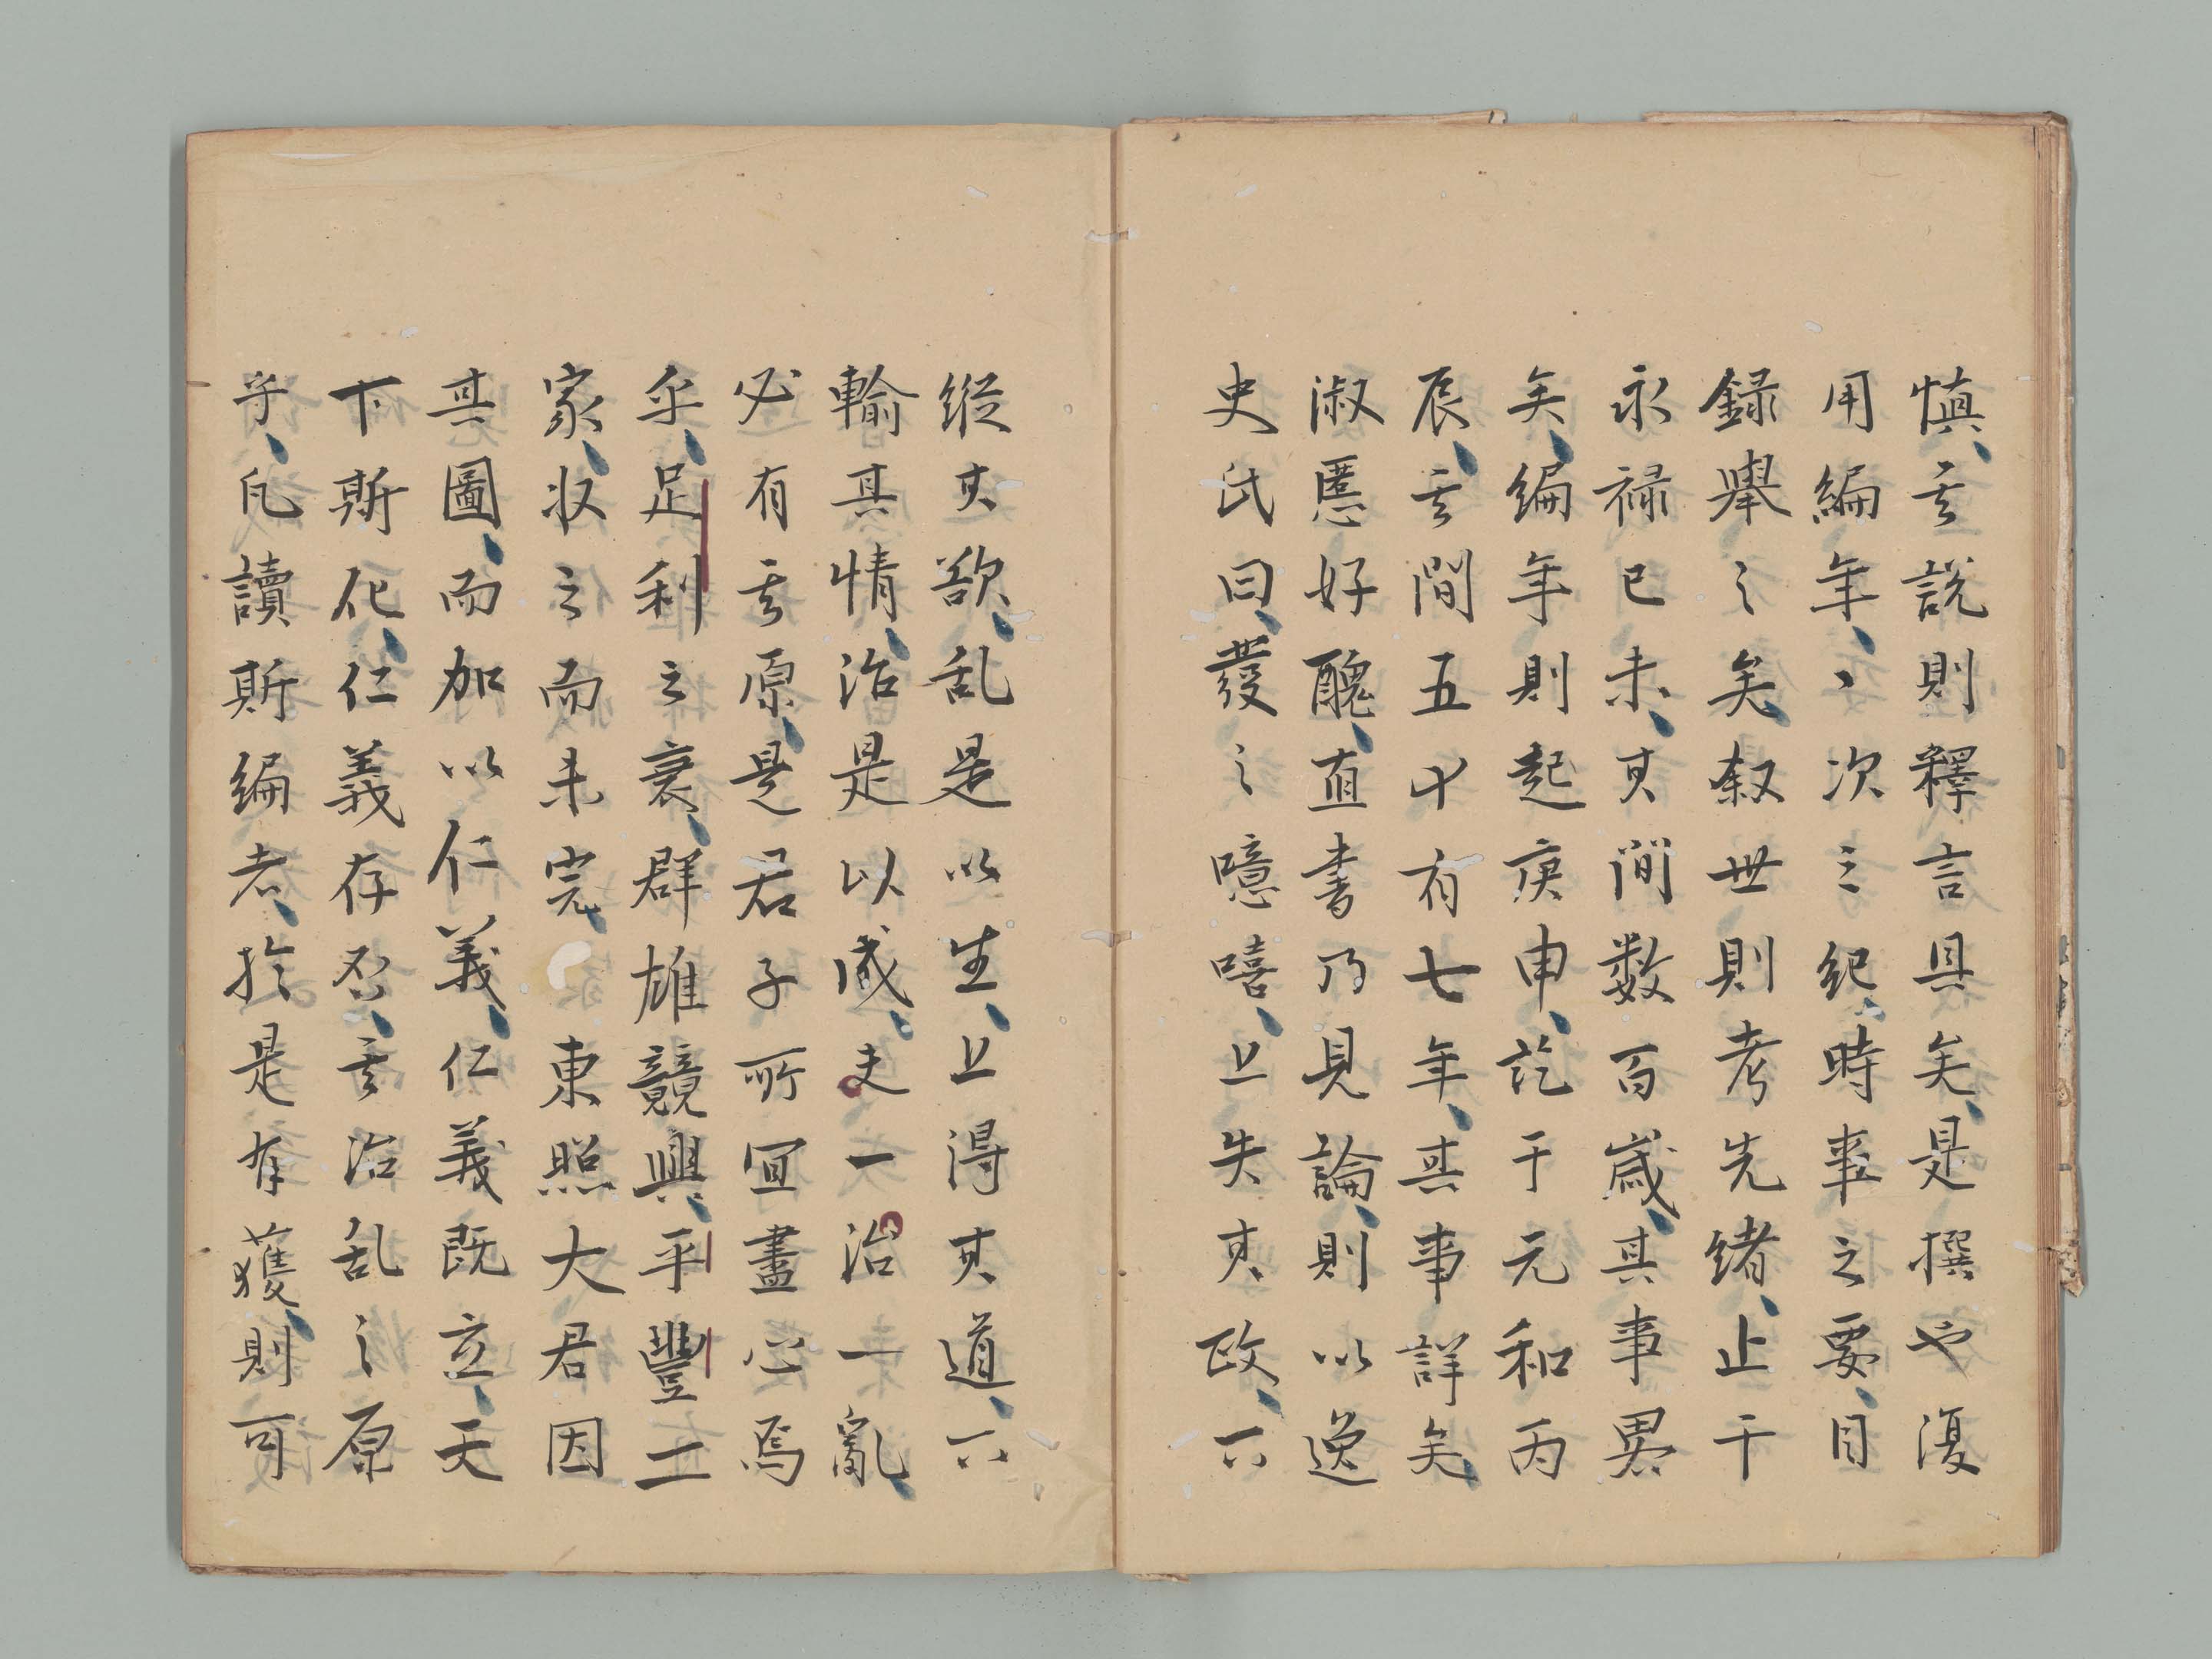 慎、其説則釋言具矣、是撰也復
用編年、〻次之紀、時事之要、目
録舉之矣、叙世則考先緒、止于
永禄已未、其間数百歳、其事畧
矣、編年則起庚申、訖于元和丙
辰、其間五十有七年、其事詳矣、
淑慝好醜、直書乃見論、則以逸
史氏曰、發之噫嘻、上失其政、下
縦其欲、乱是以生、上得其道、下
輸其情、治是以成、夫一治一亂、
必有其原、是君子所宜盡心焉
乎、足利之衰、群雄競興、平豐二
家、収之而未完、東照大君因
其圖、而加以仁義、仁義既立、天
下斯化、仁義存否、其治乱之原
乎、凡讀斯編者、於是有獲、則可